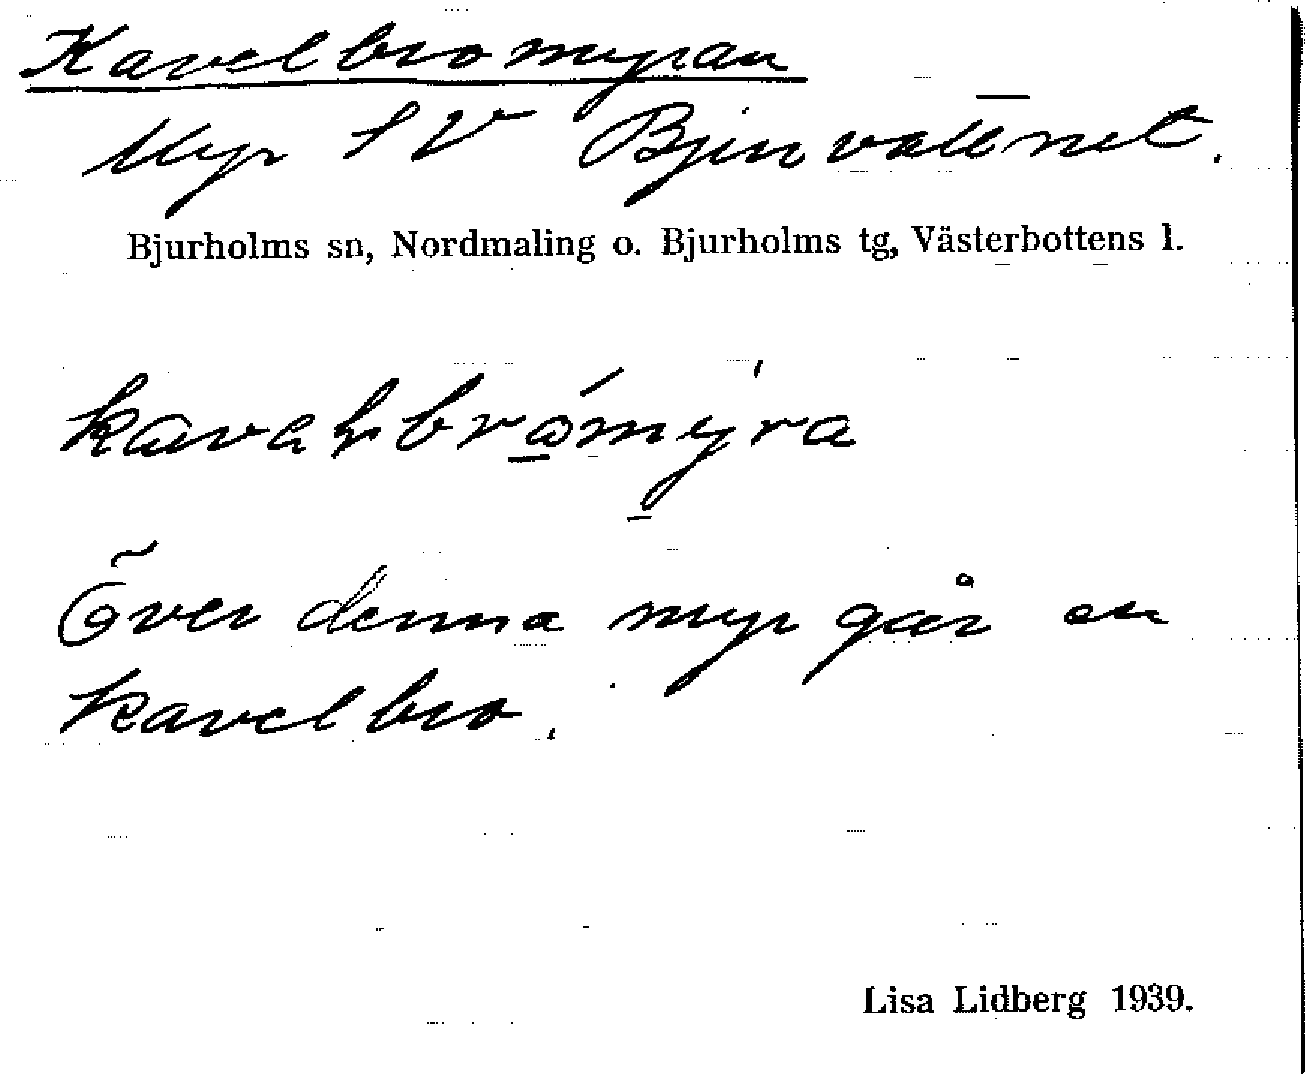 Kavelbromyran
Myr SV Bjurvattnet.
Bjurholms sn, Nordmaling o. Bjurholms tg, Västerbottens l.
Över denna myr går en
kavelbro.
Lisa Lidberg 1939.